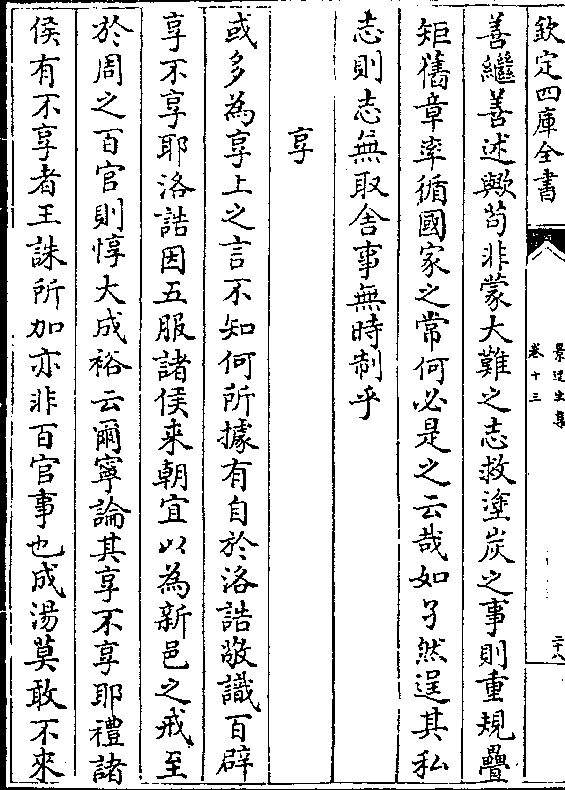 欽定四庫全書
景迂生集
卷十三
二十八
善繼善述歟苟非蒙大難之志救塗炭之事則重規疊
矩舊章率循國家之常何必是之云哉如孑然逞其私
志則志無取舍事無時制乎
享
或多為享上之言不知何所據有自於洛誥敬識百辟
享不享耶洛誥因五服諸侯来朝宜以為新邑之戒至
於周之百官則惇大成裕云爾寧論其享不享耶禮諸
侯有不享者王誅所加亦非百官事也成湯莫敢不來